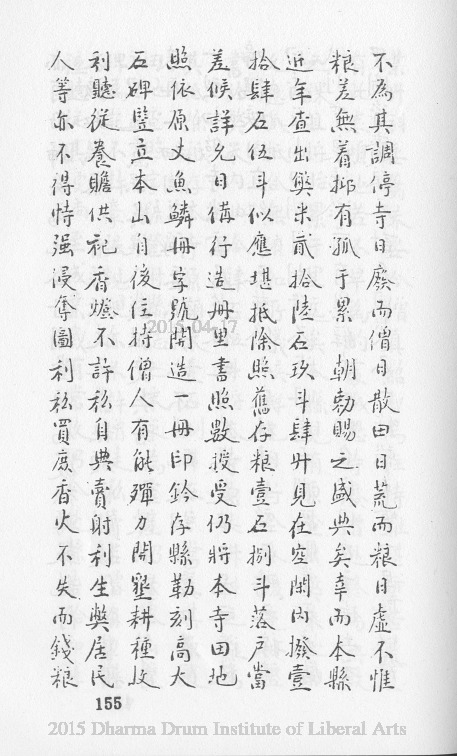 不為其調停寺日廢而僧日散田日荒而粮日虛不惟
粮差無着抑有孤于累朝勅賜之盛典矣幸而本縣
近年查出獘米貳拾陸石玖斗肆廾見在空閑內撥壹
拾肆石伍斗似應堪抵除照舊存粮壹石捌斗落戶當
差候詳允日備行造冊里書照數授受仍將本寺田地
照依原丈魚鱗冊字號開造一冊印鈐存縣勒刻高大
石碑豎立本山自後住持僧人有能殫力開墾耕種收
利聽從養贍供祀香燈不許私自典賣射利生獘居民
人等亦不得恃强侵奪圖利私買庶香火不失而錢粮
155
2015 Dharma Drum Institute of Liberal Arts